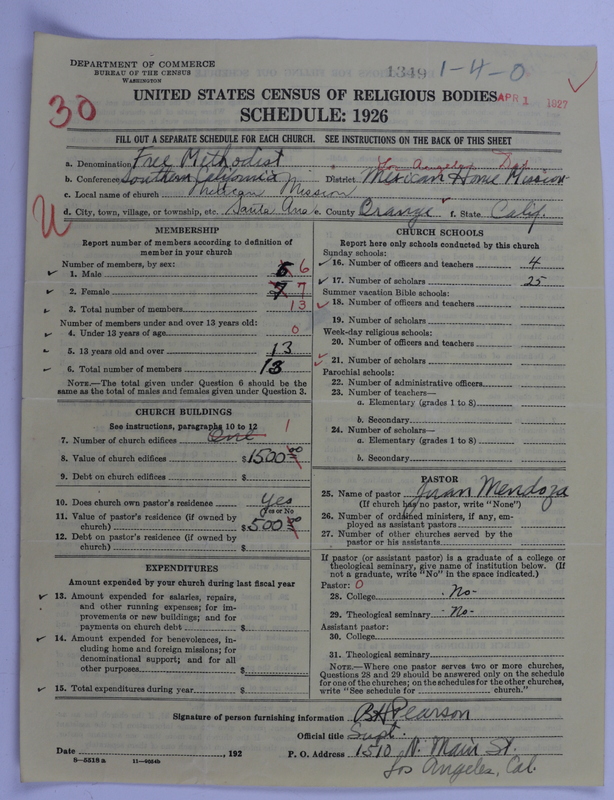 DEPARTMENT OF COMMERCE
BUREAU OF THE CENSUS
WASHINGTON
1349 1-4-0
30
UNITED STATES CENSUS OF RELIGIOUS BODIES
APR 1 1927
SCHEDULE: 1926
FILL OUT A SEPARATE SCHEDULE FOR EACH CHURCH. SEE INSTRUCTIONS ON THE BACK OF THIS SHEET
a. Denomination Free Methodist
Los Angeles Dist
b. Conference Southern California District Mexican Home Mission
c. Local name of church Mexican Mission
d. City, town, village, or township, etc. Santa Ana e. County Orange f. State Calif.
U
MEMBERSHIP
Report number of members according to definition of member in your church
Number of members, by sex:
1. Male 6 6
2. Female 7 7
3. Total number of members 13
Number of members under and over 13 years old:
4. Under 13 years of age 0
5. 13 years old and over 13
6. Total number of members 13
NOTE.—The total given under Question 6 should be the
same as the total of males and females given under Question 3.
CHURCH BUILDINGS
See instructions, paragraphs 10 to 12
7. Number of church edifices One 1
8. Value of church edifices $1500 00
9. Debt on church edifices $
10. Does church own pastor's residence Yes
Yes or No
11. Value of pastor's residence (if owned by
church) $500 00
12. Debt on pastor's residence (if owned by
church) $
EXPENDITURES
Amount expended by your church during last fiscal year
13. Amount expended for salaries, repairs,
and other running expenses; for im-
provements or new buildings; and for
payments on church debt $
14. Amount expended for benevolences, in-
cluding home and foreign missions; for
denominational support; and for all
other purposes $
15. Total expenditures during year $
CHURCH SCHOOLS
Report here only schools conducted by this church
Sunday schools:
16. Number of officers and teachers 4
17. Number of scholars 25
Summer vacation Bible schools:
18. Number of officers and teachers
19. Number of scholars
Week-day religious schools:
20. Number of officers and teachers
21. Number of scholars
Parochial schools:
22. Number of administrative officers
23. Number of teachers—
a. Elementary (grades 1 to 8)
b. Secondary
24. Number of scholars—
a. Elementary (grades 1 to 8)
b. Secondary
PASTOR
25. Name of pastor Juan Mendoza
(If church has no pastor, write "None")
26. Number of ordained ministers, if any, em-
ployed as assistant pastors
27. Number of other churches served by the
pastor or his assistants
If pastor (or assistant pastor) is a graduate of a college or
theological seminary, give name of institution below. (If
not a graduate, write "No" in the space indicated.)
Pastor: 0
28. College -No-
29. Theological seminary -No-
Assistant pastor:
30. College
31. Theological seminary
NOTE.—Where one pastor serves two or more churches,
Questions 28 and 29 should be answered only on the schedule
for one of the churches; on the schedules for the other churches,
write "See schedule for church."
Signature of person furnishing information B H Pearson
Official title Supt.
Date , 192 P. O. Address 1510 N. Main St.
Los Angeles, Cal.
8—5518 a 11—9054b